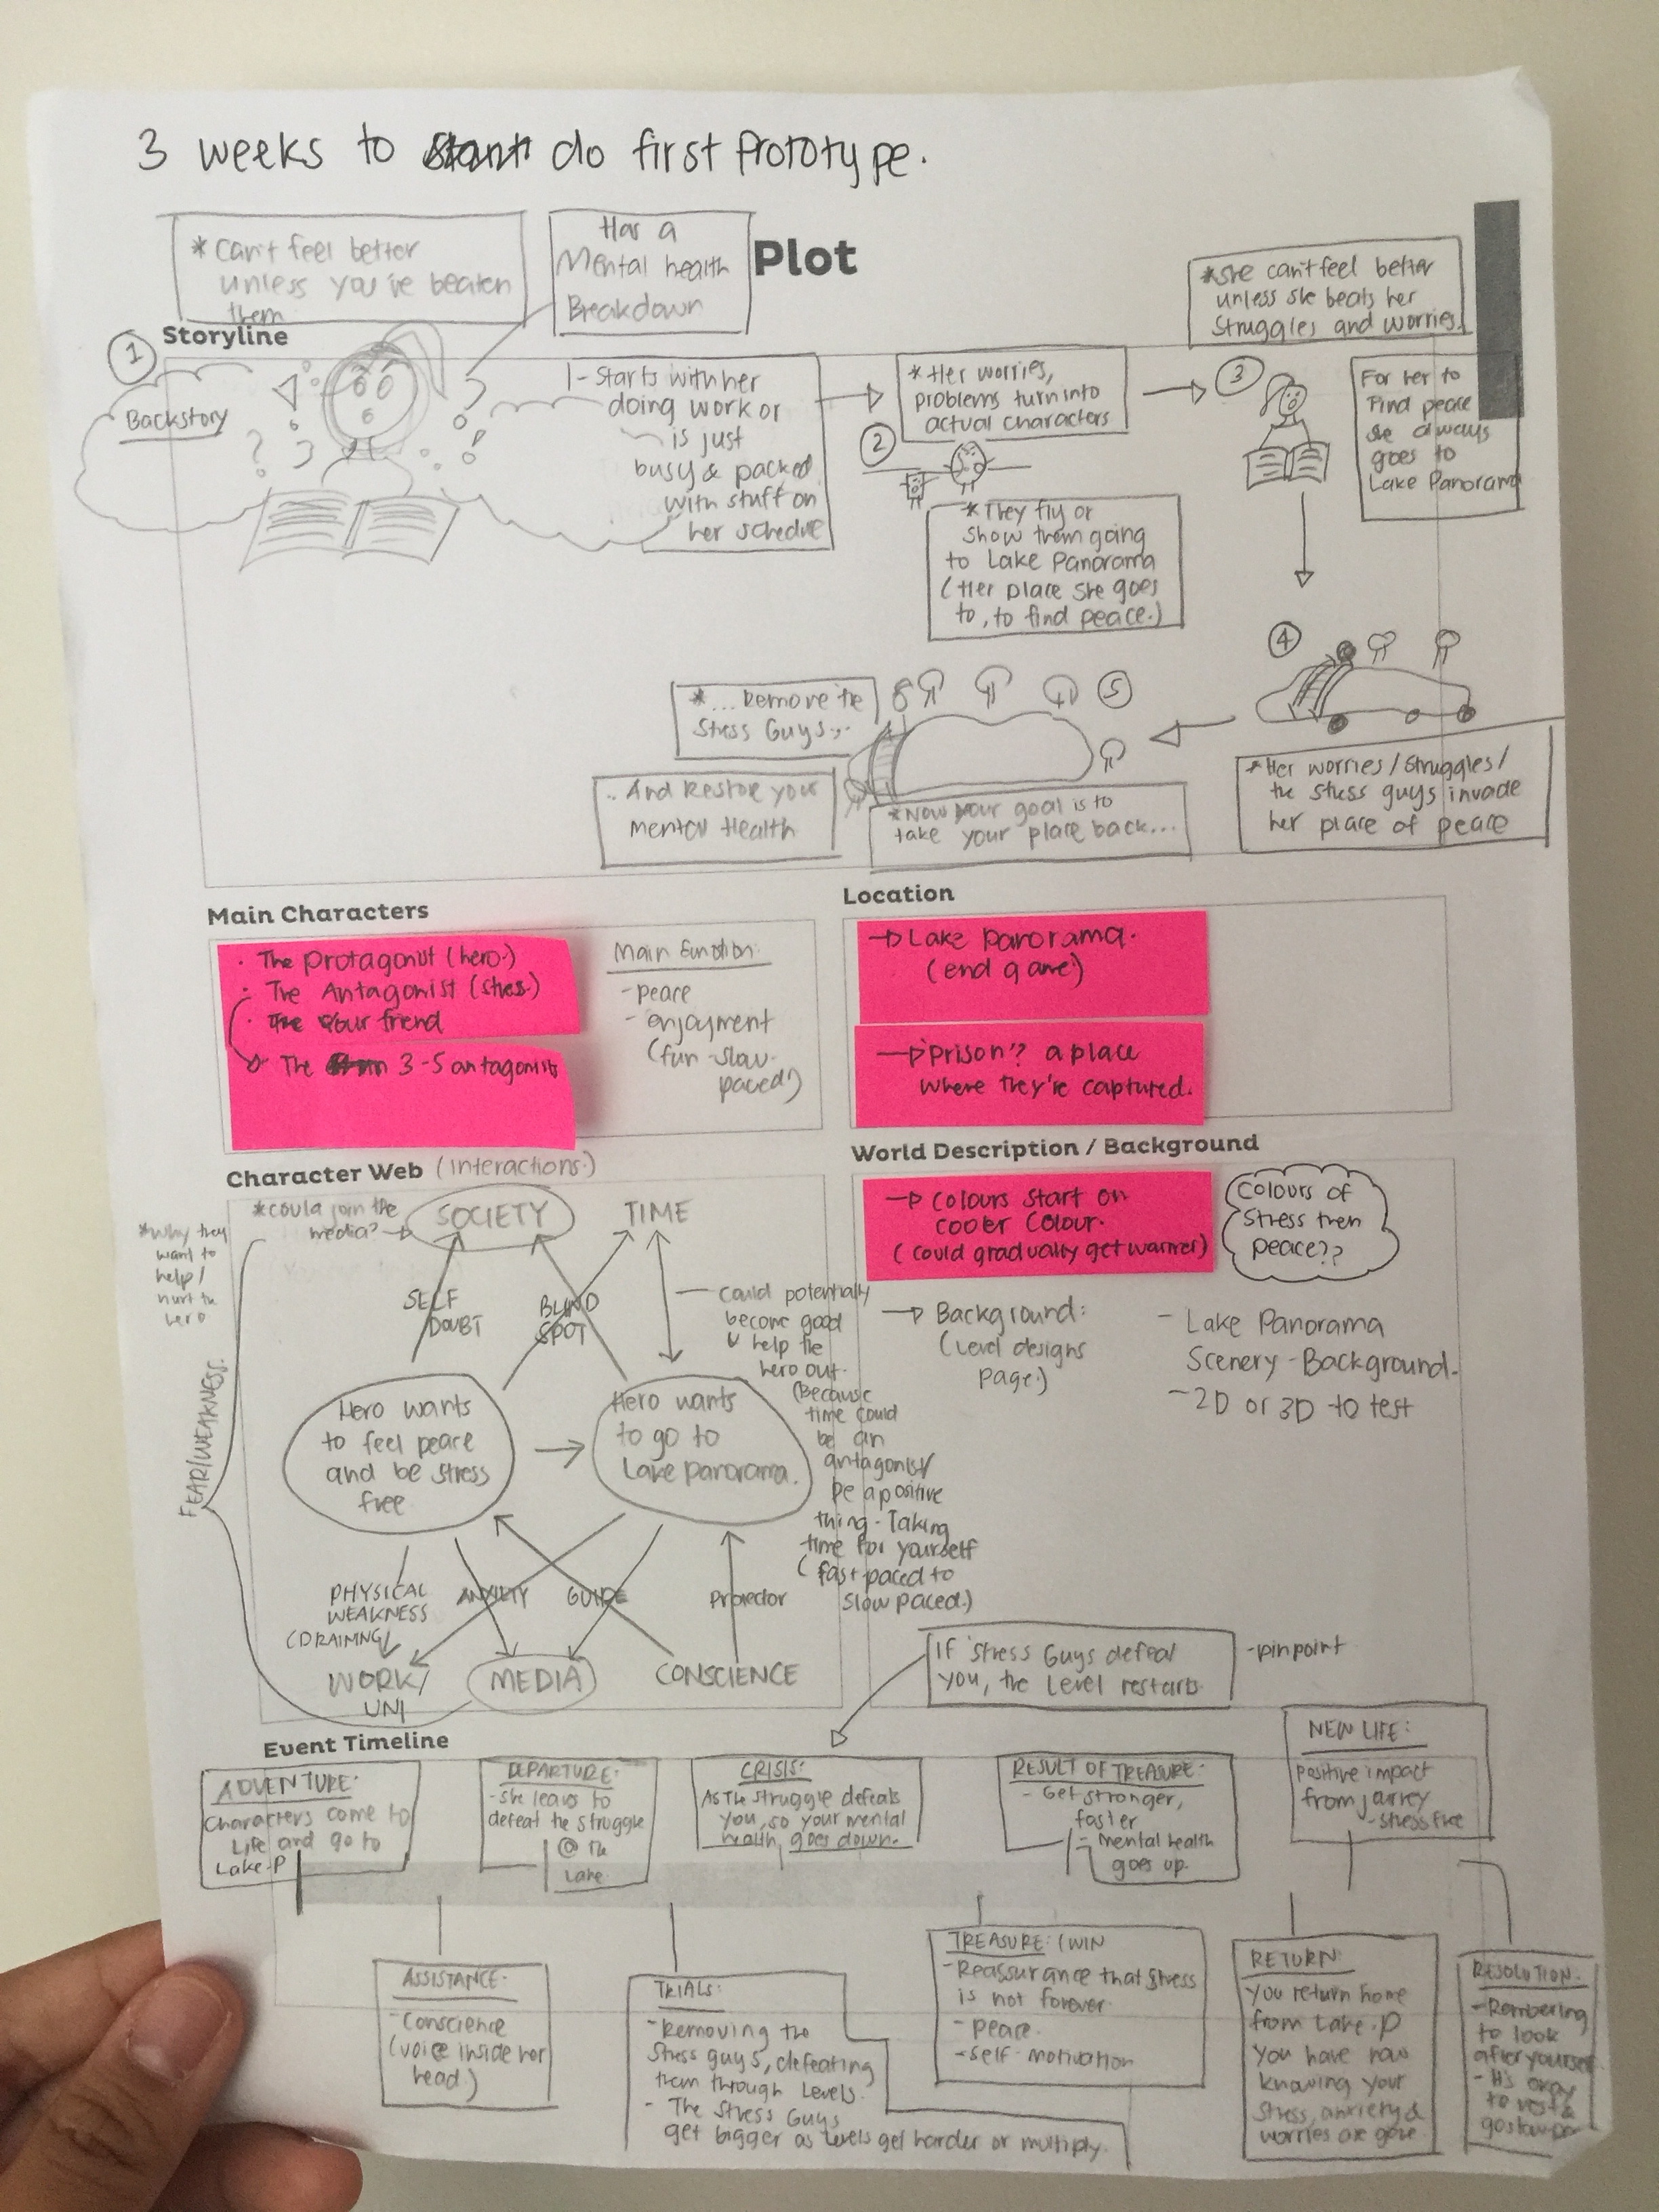 3 weeks to do first prototype.
* Can't feel better
unless you've beaten
them
Has a
Mental health
Breakdown
Plot
* She can't feel better
unless she beats her
struggles and worries.
Storyline
1
Backstory
1- Starts with her
doing work or
is just
busy & packed
with stuff on
her schedule
* Her worries,
problems turn into
actual characters
2
* They fly or
show them going
to Lake Panorama
(Her place she goes
to, to find peace.)
3
For her to
find peace
she always
goes to
Lake Panorama
4
* Her worries/struggles/
the stress guys invade
her place of peace
5
* Now your goal is to
take your place back...
* ... Remove the
Stress Guys...
.. And Restore your
mental Health
Main Characters
· The Protagonist (hero.)
· The Antagonist (stress.)
· Your friend
The 3-5 antagonists
Main Function:
- peace
- enjoyment
(fun-slow
paced!)
Location
→ Lake Panorama.
(end game)
→ Prison?? a place
where they're captured.
Character Web (interactions.)
* could join the
media?
* Why they
want to
help/
hurt the
hero
FEAR/WEAKNESS.
SOCIETY
TIME
SELF
DOUBT
BLIND
SPOT
Could potentially
become good
& help the
hero out.
(Because
time could
be an
antagonist/
be a positive
thing - Taking
time for yourself
(fast paced to
slow paced.)
Hero wants
to feel peace
and be stress
free
Hero wants
to go to
Lake Panorama.
PHYSICAL
WEAKNESS
(DRAINING)
ANXIETY
GUIDE
Protector
WORK/
UNI
MEDIA
CONSCIENCE
World Description / Background
→ Colours start on
cooler colour.
(could gradually get warmer)
Colours of
Stress then
peace??
→ Background:
(Level designs
page.)
- Lake Panorama
Scenery - Background.
- 2D or 3D to test
If Stress Guys defeat
you, the Level restarts.
- pinpoint
Event Timeline
ADVENTURE:
Characters come to
Life and go to
Lake-P
DEPARTURE:
- She leaves to
defeat the struggle
@ the
Lake.
CRISIS:
As the struggle defeats
you, so your mental
health goes down.
RESULT OF TREASURE:
- Get stronger,
faster
- Mental health
goes up.
NEW LIFE:
Positive impact
from jarrey
- stress free
ASSISTANCE:
- Conscience
(voice inside her
head)
TRIALS:
- Removing the
Stress guys, defeating
them through Levels.
- The Stress Guys
get bigger as levels get harder or multiply.
TREASURE: (WIN
- Reassurance that stress
is not forever.
- peace.
- self-motivation
RETURN:
You return home
from Lake.P
You have now
knowing your
stress, anxiety &
worries are gone.
RESOLUTION:
- Rembering
to look
after yourself
- It's okay
to rest &
go slow